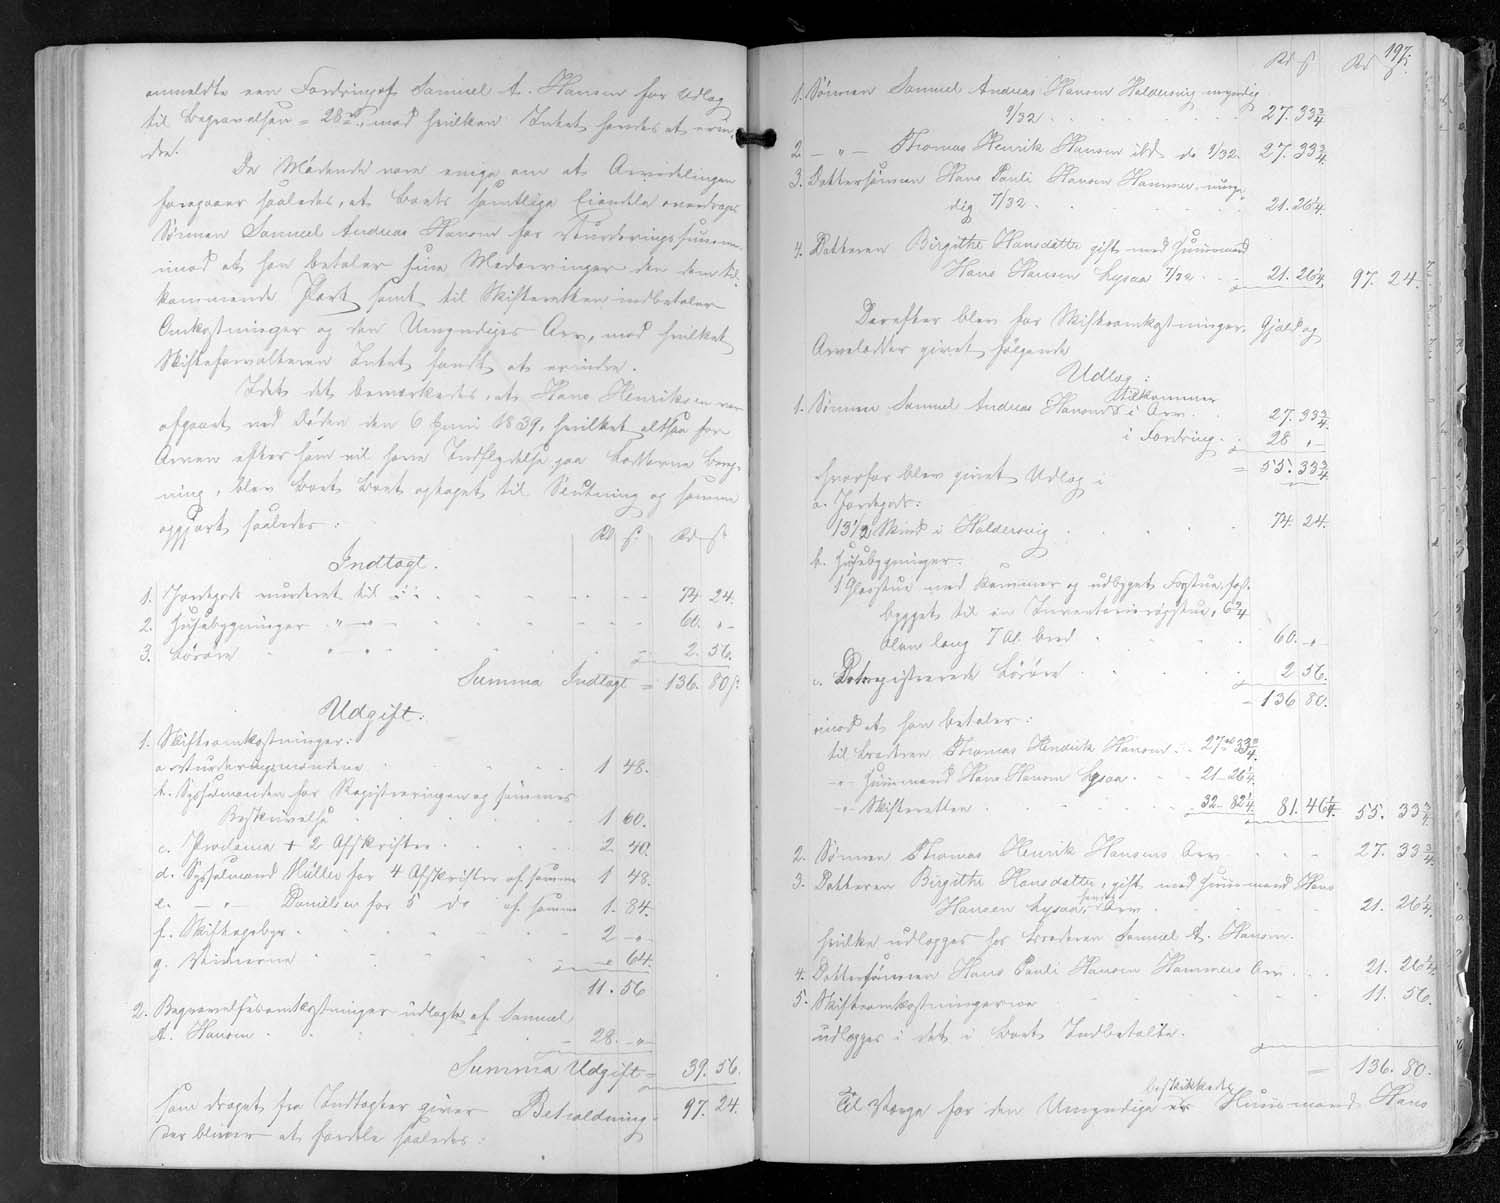 anmeldte een Fordring af Samuel A. Hansen for Udlæg
til Begravelsen = 28 rd, mod hvilken Intet havdes at erin-
dre.
De Mødende vare enige om at Arvedelingen
foregaaer saaledes, at Boets samtlige Eiendele overdrages
Sønnen Samuel Andreas Hansen for Vurderingssummen
imod at han betaler sine Medarvinger den dem til-
kommende Part samt til Skifteretten indbetaler
Omkostninger og den Umyndiges Arv, mod hvilket
Skifteforvalteren Intet fandt at erindre.
Idet det bemærkedes, at Hans Henriksen var
afgaaet ved Døden den 6 Juni 1839, hvilket altsaa for
Arven efter ham vil have Indflydelse paa Lodderne Bereg-
ning, blev Boet optaget til Slutning og samme
opgjort saaledes:
Rd ß Rd ß
Indtægt.
1. Jordegods vurderet til 74. 24.
2. Huusebygninger " 60. " -
3. Løsøre " 2. 56.
Summa Indtægt = 136. 80 ß.
Udgift:
1. Skifteomkostninger:
a. Vurderingsmændene 1 48.
b. Sysselmanden for Registreringen og sammes
Beskrivelse 1 60.
c. Proclama + 2 Afskrifter 2. 40.
d. Sysselmand Müller for 4 Afskrifter af samme 1 48.
e. - " - Danielsen for 5 do af samme 1. 84.
f. Skiftegebyr 2 - " -
g. Vidnerne - " 64.
11. 56
2. Begravelsesomkostninger udlagte af Samuel
A. Hansen 28. - " -
Summa Udgift = 39. 56.
som draget fra Indtægter giver Beholdning 97. 24.
der bliver at fordele saaledes:
197.
Rd ß Rd ß
1. Sønnen Samuel Andreas Hansen Haldersvig myndig
9/32 27. 33 3/4
2. - " - Thomas Henrik Hansen ibd do 9/32. 27. 33 3/4
3. Dattersønnen Hans Pauli Hansen Hammer, umyn-
dig 7/32 21. 26 1/4.
4. Datteren Birgithe Hansdatter gift med Huusmand
Hans Hansen Lysaa 7/32 21. 26 1/4. 97. 24.
Derefter blev for Skifteomkostninger, Gjæld og
Arvelodder givet følgende
Udlæg:
1. Sønnen Samuel Andreas Hansen tilkommer i Arv 27. 33 3/4.
i Fordring 28 " -
= 55. 33 3/4
hvorfor blev givet Udlæg i
a. Jordegods:
13 1/2 Skind i Haldersvig 74. 24.
b. Huusebygninger.
1 Glasstue med Kammer og udbygget Forstue, sam-
bygget til en Inventarie røgstue, 6 3/4
Alen lang 7 Al. bred 60. - " -
c. Det registrerede Løsøre 2 56.
= 136 80.
imod at han betaler:
til Broderen Thomas Hendrik Hansen 27 rd 33 3/4.
- " - Huusmand Hans Hansen Lysaa 21 - 26 1/4.
- " - Skifteretten 32 - 82 1/4. 81. 46 1/4. 55. 33 3/4
2. Sønnen Thomas Henrik Hansens Arv 27. 33 3/4
3. Datteren Birgithe Hansdatter, gift med Huusmand Hans
Hansen Lysaa, hendes Arv 21. 26 1/4.
hvilke udlægges hos Broderen Samuel A. Hansen.
4. Dattersønnen Hans Pauli Hansen Hammers Arv 21. 26 1/4.
5. Skifteomkostningerne 11. 56.
udlægges i det i Boet Indbetalte.
= 136. 80.
Til Værge for den Umyndige beskikkedes Huusmand Hans